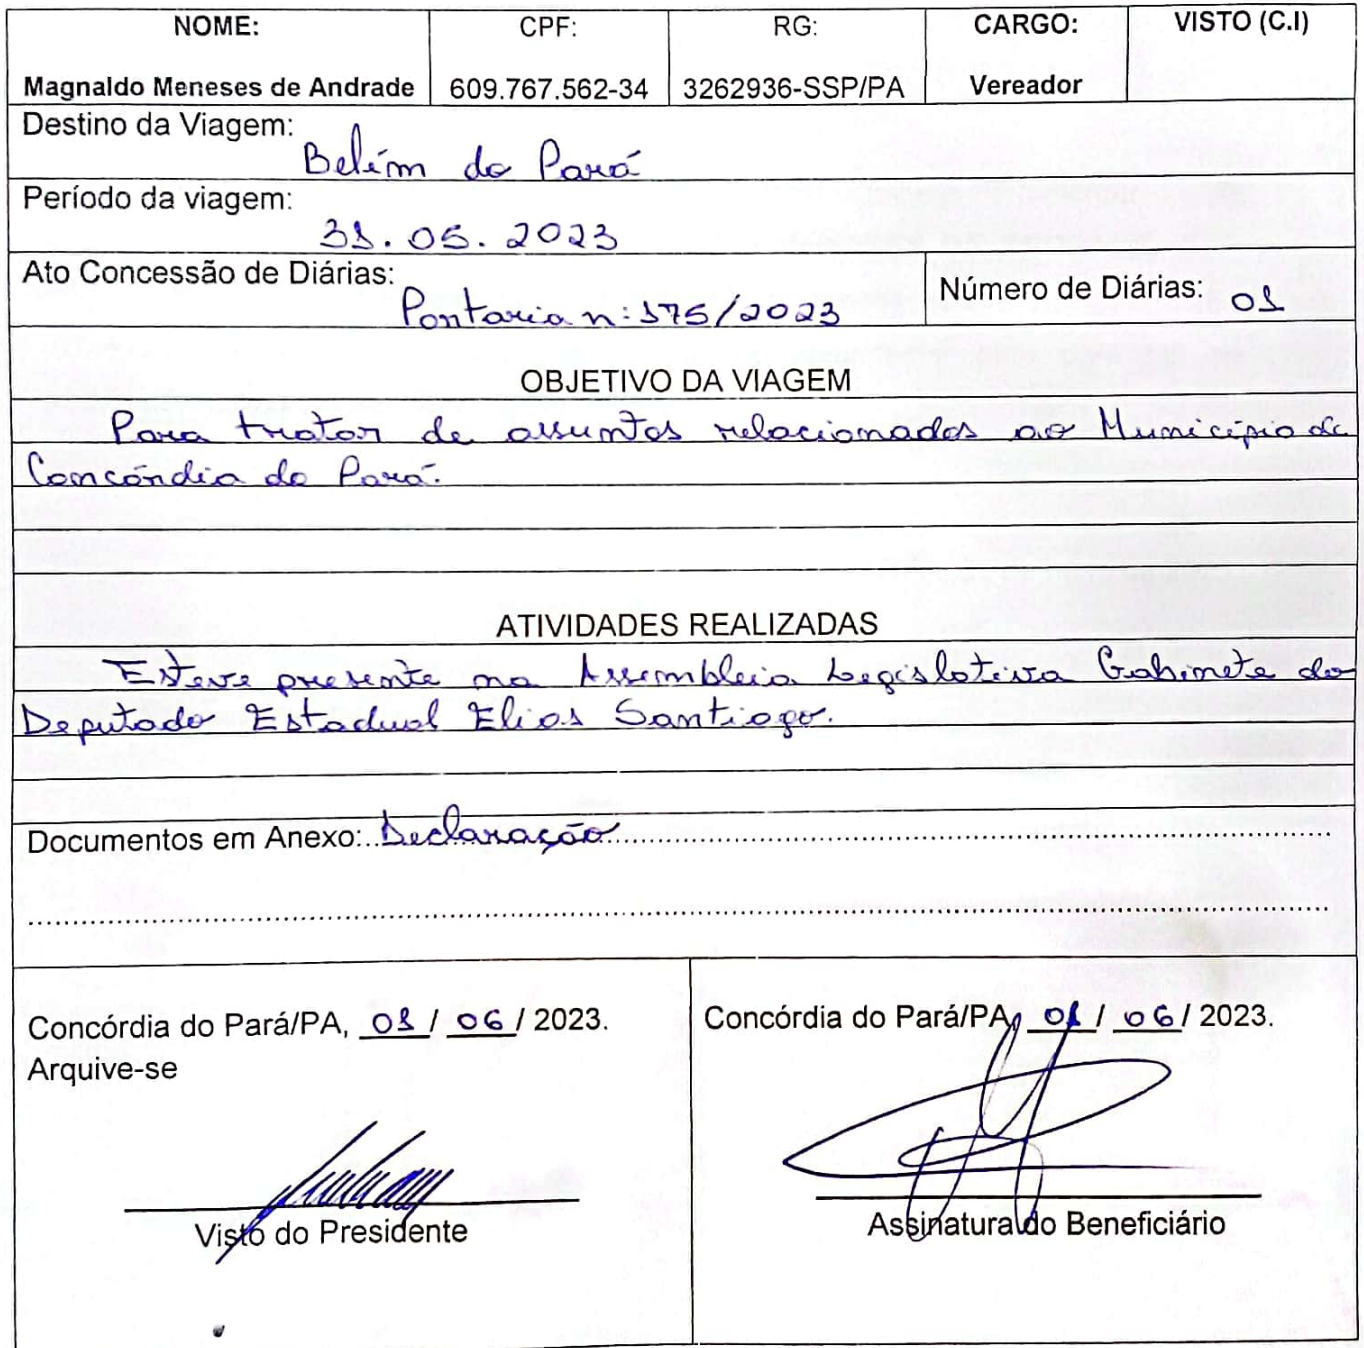 NOME: CPF: RG: CARGO: VISTO (C.I)
Magnaldo Meneses de Andrade 609.767.562-34 3262936-SSP/PA Vereador
Destino da Viagem: Belém do Pará
Período da viagem: 31.05.2023
Ato Concessão de Diárias: Portaria n: 175/2023 Número de Diárias: 01
OBJETIVO DA VIAGEM
Para tratar de assuntos relacionados ao Município de
Concórdia do Pará.
ATIVIDADES REALIZADAS
Esteve presente na Assembleia Legislativa Gabinete do
Deputado Estadual Elias Santiago.
Documentos em Anexo: Declaração
Concórdia do Pará/PA, 01 / 06 / 2023.
Arquive-se
Visto do Presidente
Concórdia do Pará/PA, 01 / 06 / 2023.
Assinatura do Beneficiário